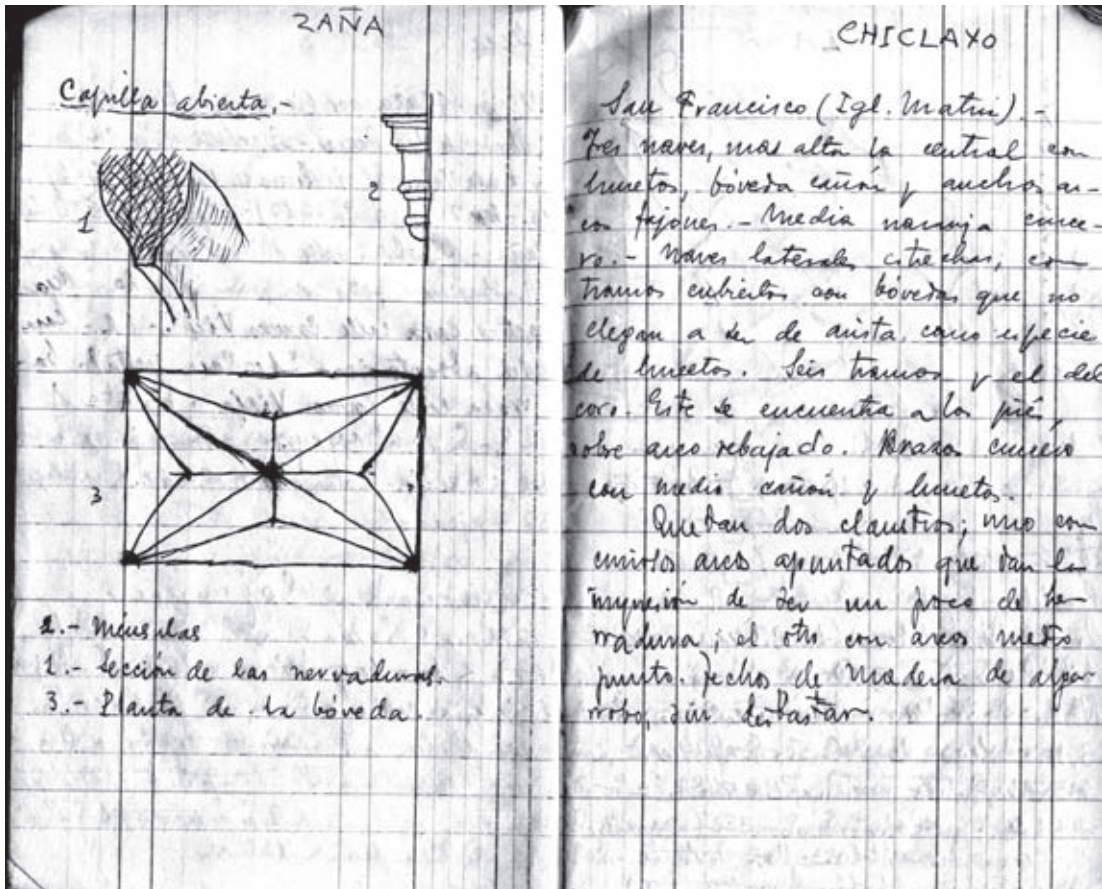 ZAÑA
Capilla abierta.-
1
2
3
2.- Ménsulas
1.- Sección de las nervaduras.
3.- Planta de la bóveda.
CHICLAYO
San Francisco (Igl. Matriz).-
Tres naves, mas alta la central con
lunetos, bóveda cañón y anchos ar-
cos fajones.- Media naranja cruce-
ro.- Naves laterales estrechas, con
tramos cubiertos con bóvedas que no
llegan a ser de arista, como especie
de lunetos. Seis tramos y el del
coro. Este se encuentra a los piés,
sobre arco rebajado. Brazos crucero
con medio cañón y lunetos.
Quedan dos claustros; uno con
curiosos arcos apuntados que dan la
impresión de ser un poco de he-
rradura; el otro con arcos medio
punto. Techos de madera de algar-
robo, sin desbastar.